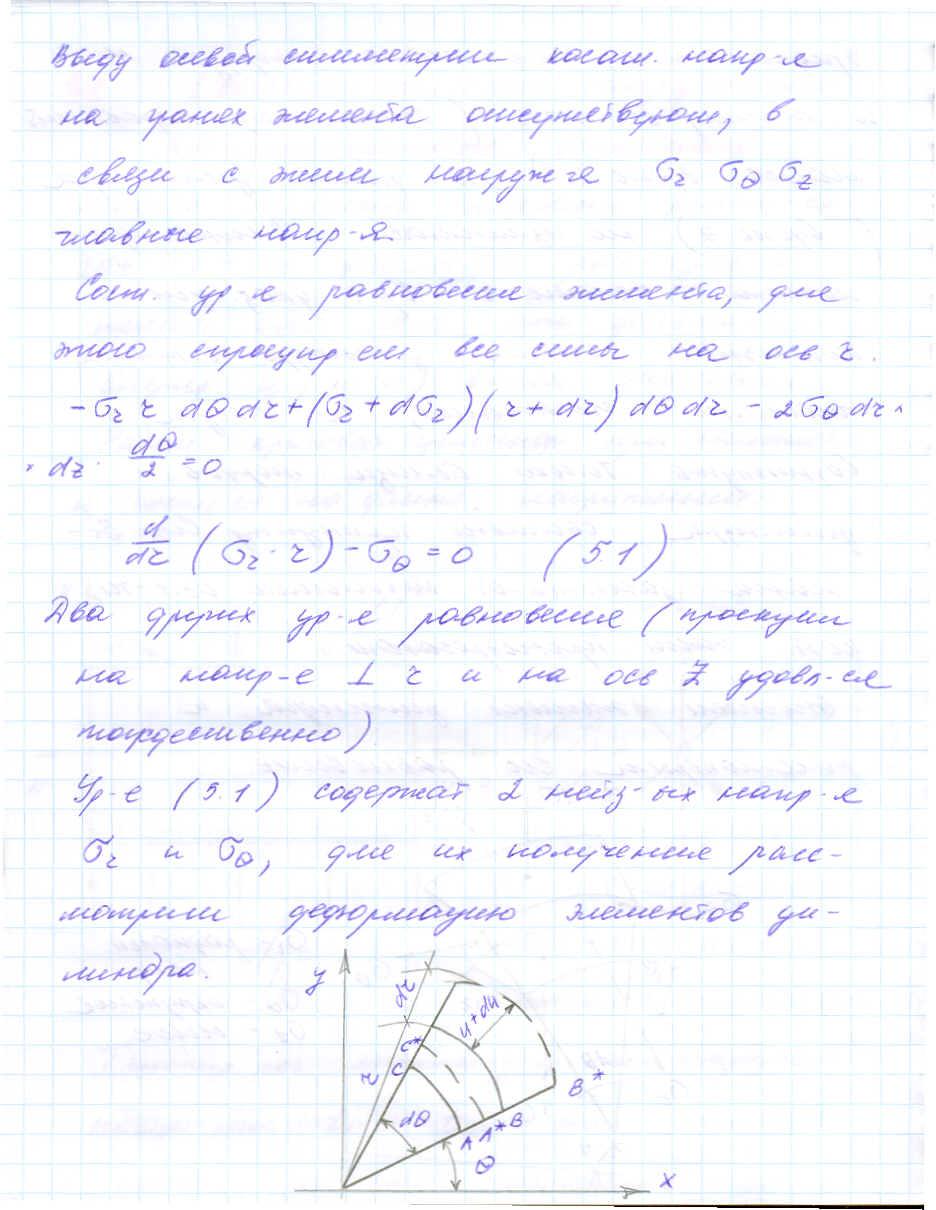 Ввиду осевой симметрии касат. напр-я
на гранях элемента отсутствуют, в
связи с этим напруж-я σr σθ σz
главные напр-я.
Сост. ур-я равновесия элемента, для
этого спроецир-ем все силы на ось r.
-σr r dθ dr + (σr + dσr)(r + dr) dθ dr - 2σθ dr ×
× dz · dθ/2 = 0
d/dr (σr · r) - σθ = 0 (5.1)
Два других ур-я равновесия (проекции
на напр-е ⊥ r и на ось Z удовл-ся
тождественно)
Ур-е (5.1) содержат 2 неиз-ых напр-я
σr и σθ, для их получения расс-
мотрим деформацию элементов ци-
линдра.
y
dr
u+du
C*
C
r
B*
dθ
A A* B
θ
x